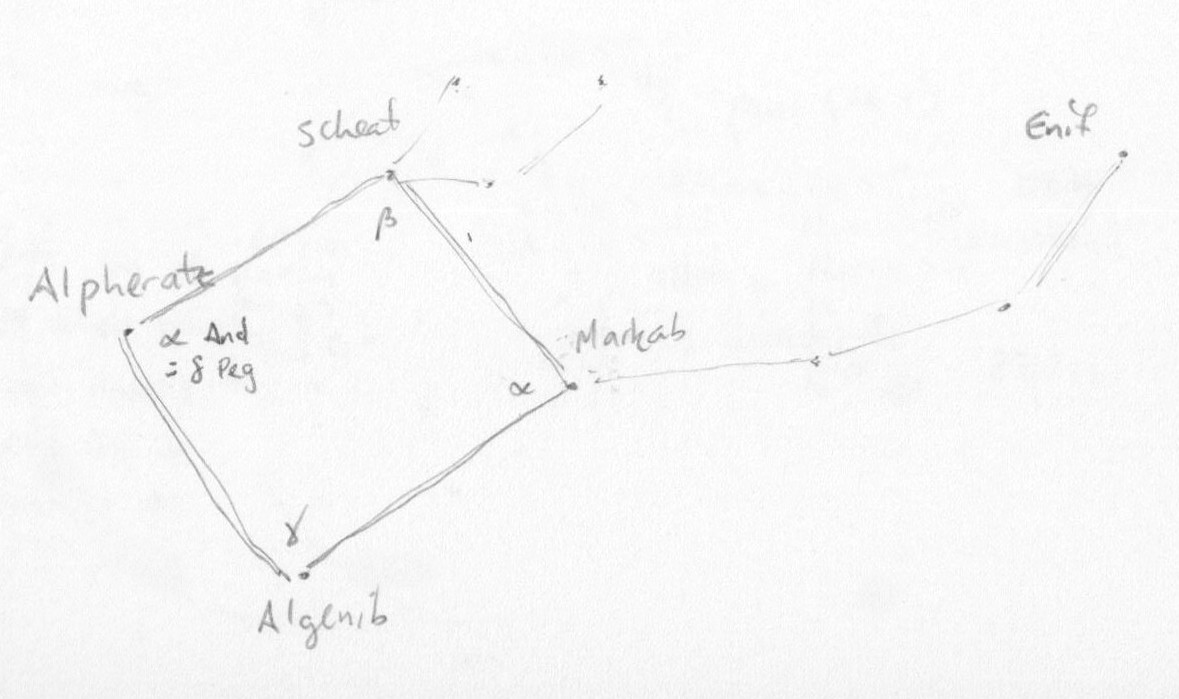 Scheat
Enif
β
Alpheratz
α And
= δ Peg
Markab
α
γ
Algenib